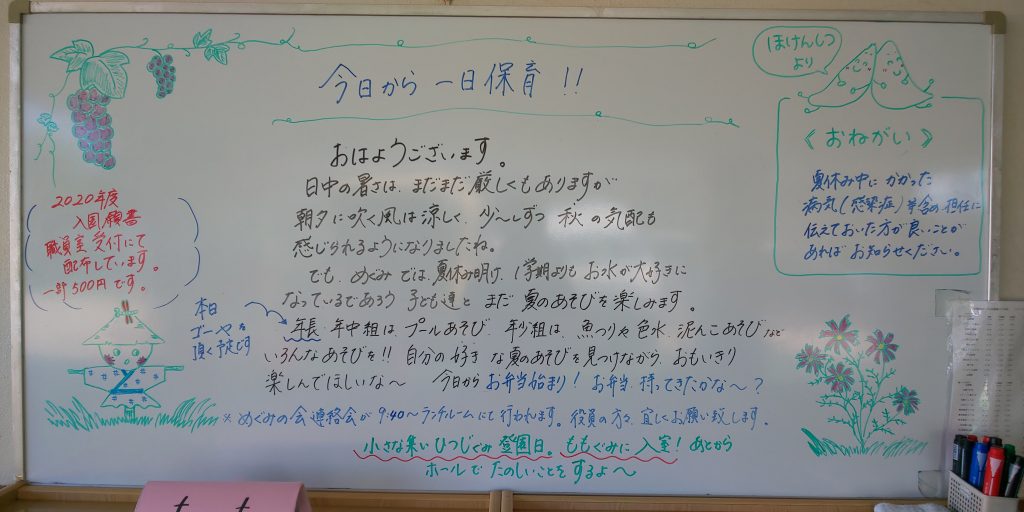 今日から 一日保育 !!
おはようございます。
日中の暑さは、まだまだ厳しくもありますが
朝夕に吹く風は涼しく、少〜しずつ 秋の気配も
感じられるようになりましたね。
でも、めぐみでは、夏休み明け、1学期よりも お水が大好きに
なっているであろう 子ども達と まだ 夏のあそびを楽しみます。
年長・年中組は プールあそび、年少組は、魚つりや色水、泥んこあそびなど
いろんなあそびを!! 自分の好きな夏のあそびを見つけながら、おもいきり
楽しんでほしいな〜 今日からお弁当始まり! お弁当、持ってきたかな〜?
※ めぐみの会 連絡会が 9:40〜ランチルームにて行われます。役員の方々、宜しくお願い致します。
小さな集い ひつじぐみ 登園日。ももぐみに入室! あとから
ホールで たのしいことをするよ〜
2020年度
入園願書
職員室受付にて
配布しています。
一部500円です。
本日
ゴーヤを
頂く予定です
ほけんしつ
より
《おねがい》
夏休み中に かかった
病気(感染症)等 の担任に
伝えておいた方が良いことが
あれば お知らせください。